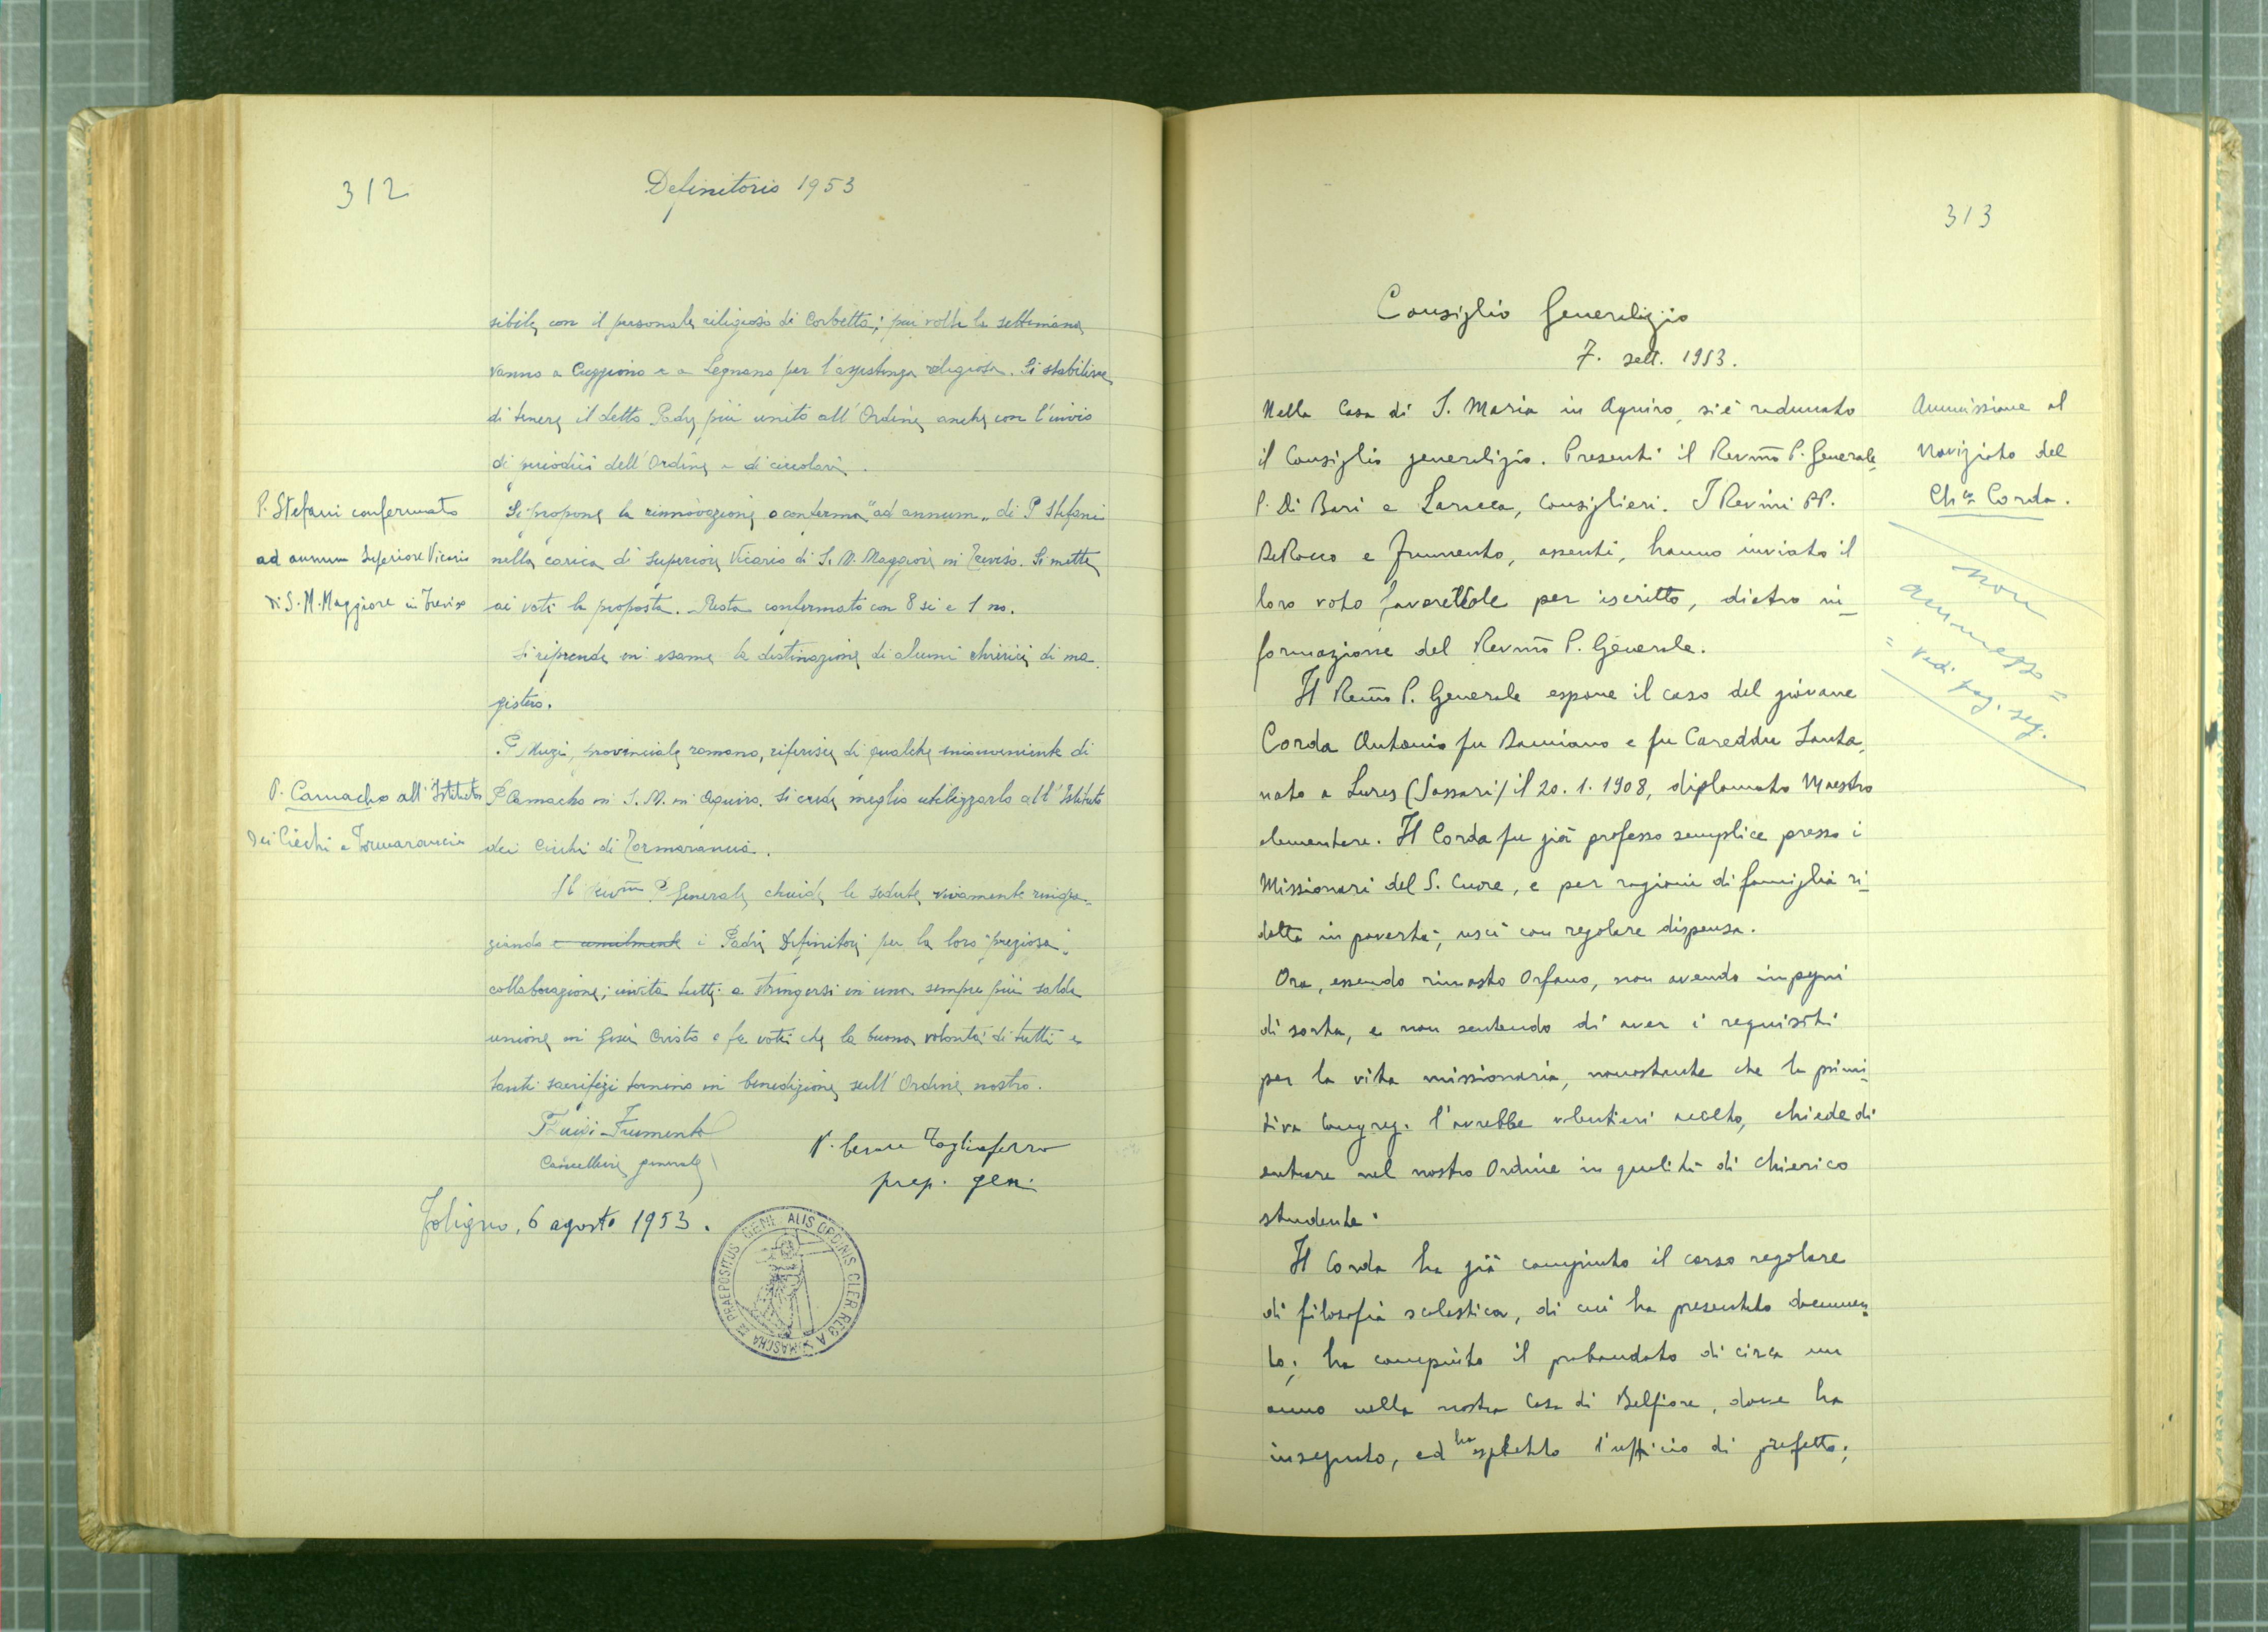 312
Definitorio 1953
sibile con il personale religioso di Corbetta; più volte la settimana
vanno a Cuggiono e a Legnano per l'assistenza religiosa. Si stabilisce
di tenere il detto Padre più unito all'Ordine anche con l'invio
di periodici dell'Ordine e di circolari.
P. Stefani confermato
ad annum Superiore Vicario
di S. M. Maggiore in Treviso
Si propone la rinnovazione o conferma "ad annum" di P. Stefani
nella carica di Superiore Vicario di S. M. Maggiore in Treviso. Si mette
ai voti la proposta. Resta confermato con 8 si e 1 no.
Si riprende in esame la destinazione di alcuni chierici di ma-
gistero.
P. Muzi, provinciale romano, riferisce di qualche inconveniente di
P. Camacho all'Istituto
dei Ciechi a Tormarancia
P. Camacho in S. M. in Aquiro. Si crede meglio utilizzarlo all'Istituto
dei Ciechi di Tormarancia.
Il Revm̃o P. Generale chiude le sedute vivamente ringra-
ziando e umilmente i Padri Definitori per la loro "preziosa"
collaborazione; invita tutti a stringersi in una sempre più salda
unione in Gesù Cristo e fa voti che la buona volontà di tutti e
tanti sacrifizi tornino in benedizione sull'Ordine nostro.
P. Luigi Frumento
Cancelliere generale
P. Cesare Tagliaferro
prep. gen.
Foligno, 6 agosto 1953.
PRAEPOSITUS GENERALIS ORDINIS CLER. REG. A SOMASCHA
313
Consiglio Generalizio
7. sett. 1953.
Nella Casa di S. Maria in Aquiro, si è radunato
il Consiglio generalizio. Presenti il Revm̃o P. Generale,
P. Di Bari e Laracca, Consiglieri. I Rev.mi PP.
De Rocco e Frumento, assenti, hanno inviato il
loro voto favorevole per iscritto, dietro in-
formazione del Revm̃o P. Generale.
Ammissione al
Noviziato del
Ch.co Corda.
non
ammesso =
= vedi pag. seg.
Il Revm̃o P. Generale espone il caso del giovane
Corda Antonio fu Damiano e fu Careddu Santa,
nato a Luras (Sassari) il 20. 1. 1908, diplomato Maestro
elementare. Il Corda fu già professo semplice presso i
Missionari del S. Cuore, e per ragioni di famiglia ri-
dotta in povertà, uscì con regolare dispensa.
Ora, essendo rimasto orfano, non avendo impegni
di sorta, e non sentendo di aver i requisiti
per la vita missionaria, nonostante che la primi-
tiva Congreg. l'avrebbe volentieri accolto, chiede di
entrare nel nostro Ordine in qualità di chierico
studente.
Il Corda ha già compiuto il corso regolare
di filosofia scolastica, di cui ha presentato documen-
to; ha compiuto il probandato di circa un
anno nella nostra Casa di Belfiore, dove ha
insegnato, ed ha espletato l'ufficio di prefetto;